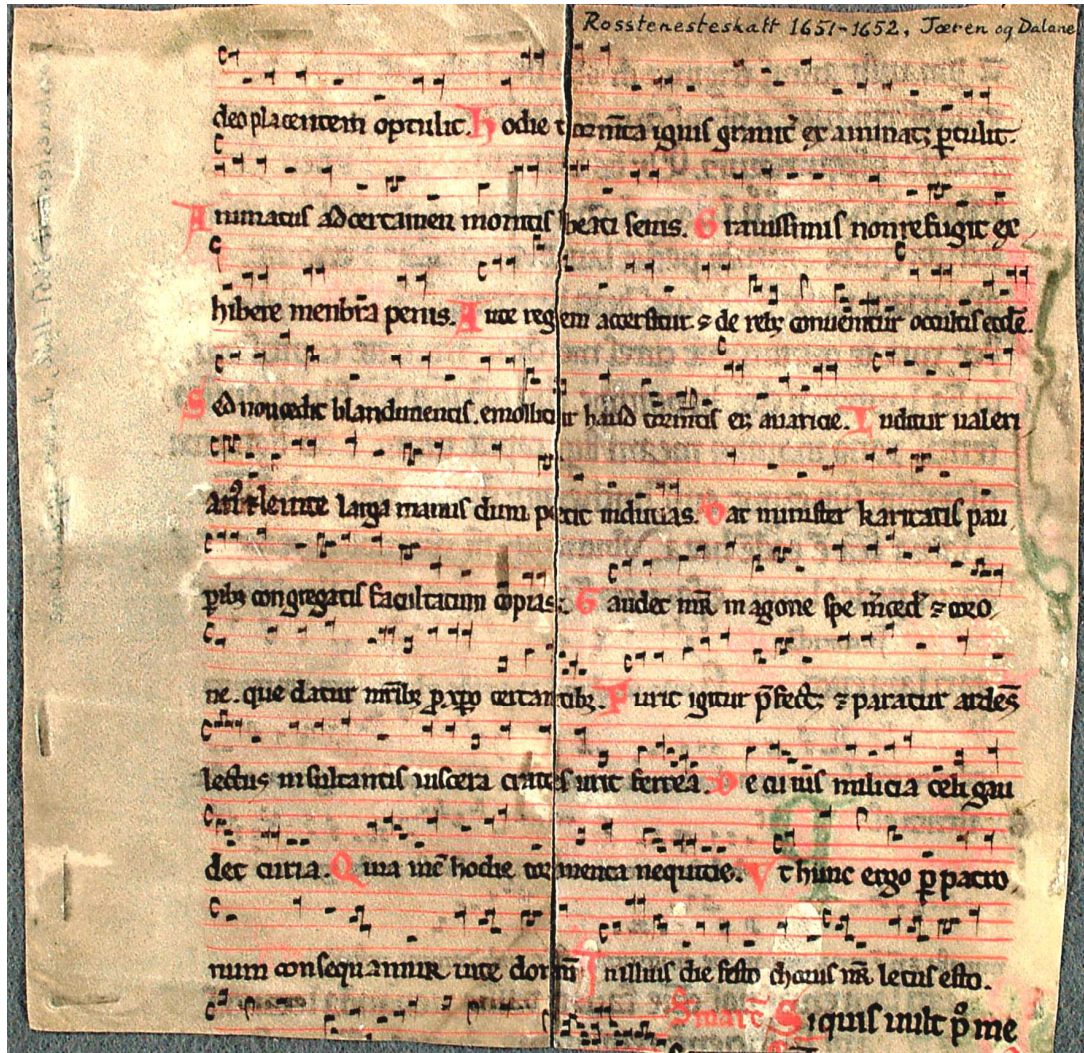 Rosstenesteskatt 1651-1652, Jæren og Dalane
deo placentem optulit. Hodie tormta ignis grauit examinat; ptulit.
Animatus ad certamen monitis beati senis. Grauissimis non refugit ex
hibere menbra penis. Ante regem accersitur & de reb; conuenitur occultis eccle.
Sed non cedit blandimentis. emollitur haud tormtis ei; auaricie. Luditur ualeri
an; & leuite larga manus dum petit inducias. Dat minister karitatis pau
pib; congregatis facultatum copias. Gaudet mr in agone spe mced & coro
ne. que datur mrib; p xpo certantib;. Furit igitur pfect; & paratur ardes
lectus insultantis uiscera crates urit ferrea. De cuius milicia celi gau
det curia. Quia uic hodie tormenta nequitie. Vt hunc ergo p patro
num consequamur uite donum In illius die festo chorus nr letus esto.
Siquis uult p me